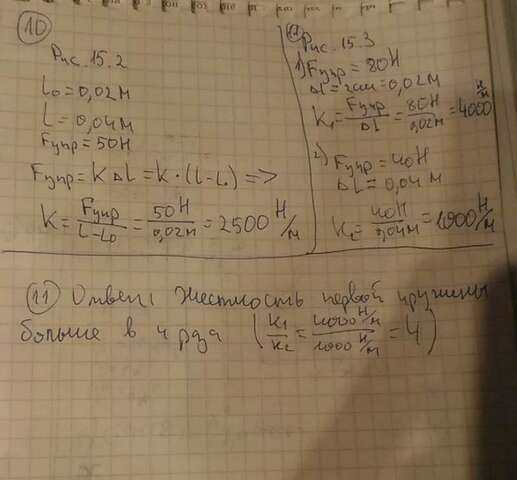 10
Рис. 15.2
l₀=0,02м
l=0,04м
Fупр=50Н
Fупр=K Δl=K·(l-l₀)=>
K=Fупр/l-l₀=50Н/0,02м=2500 Н/м
Рис. 15.3
1) Fупр=80Н
Δl=2см=0,02м
K₁=Fупр/Δl=80Н/0,02м=4000 Н/м
2) Fупр=40Н
Δl=0,04м
K₂=40Н/0,04м=1000 Н/м
11 Ответ: Жесткость первой пружины
больше в 4 раза (K₁/K₂=4000 Н/м/1000 Н/м=4)